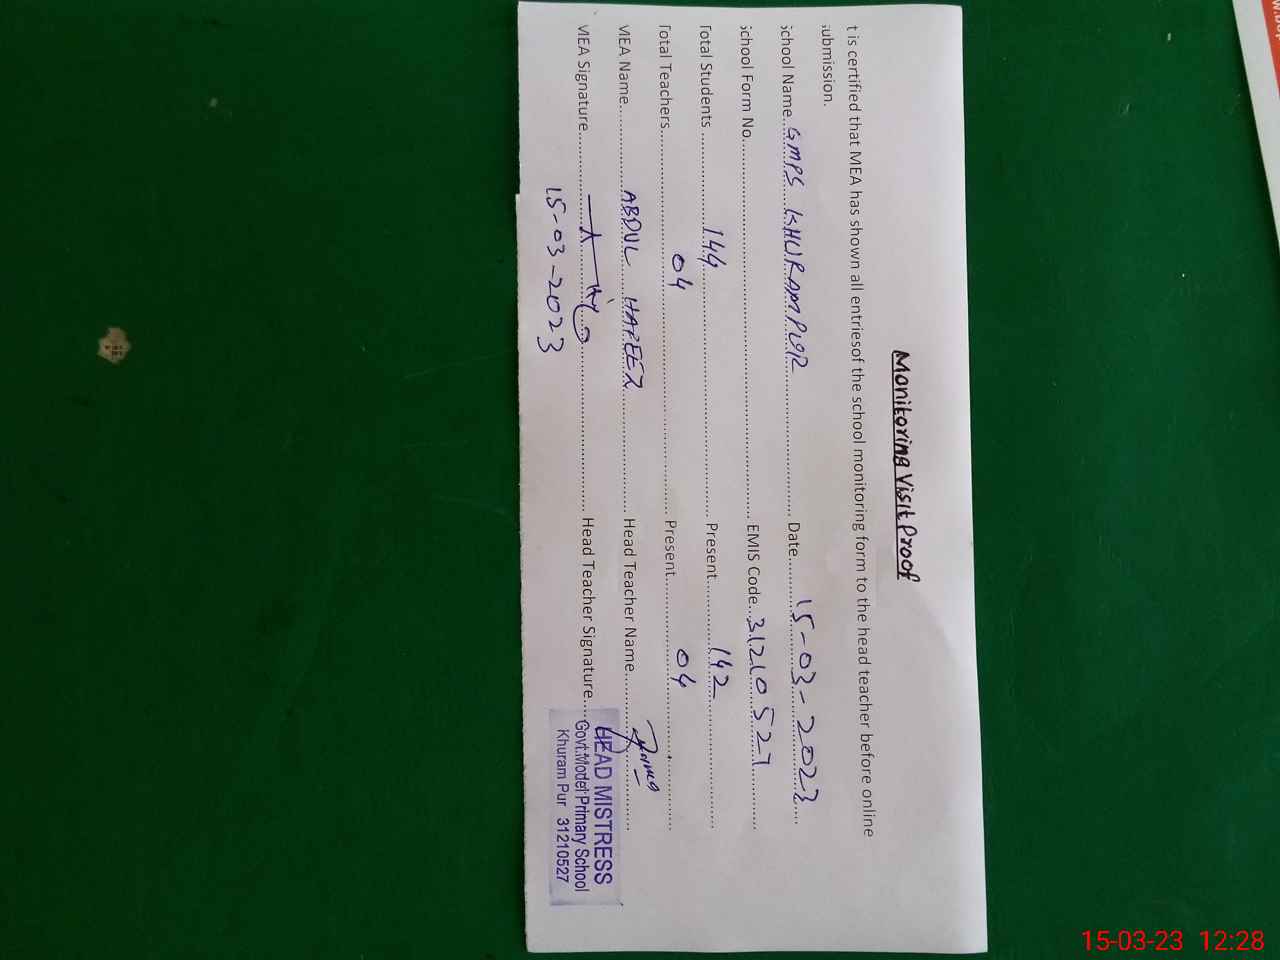 Monitoring Visit Proof
t is certified that MEA has shown all entriesof the school monitoring form to the head teacher before online
submission.
School Name...GMPS KHURAMPUR............ Date.......15-03-2023....
School Form No............................ EMIS Code...31210527.........
Total Students ............144............ Present............142............
Total Teachers............04............ Present............04............
MEA Name............ABDUL HAFEEZ............ Head Teacher Name............
MEA Signature............ Head Teacher Signature....
15-03-2023
HEAD MISTRESS
Govt.Model Primary School
Khuram Pur 31210527
15-03-23 12:28